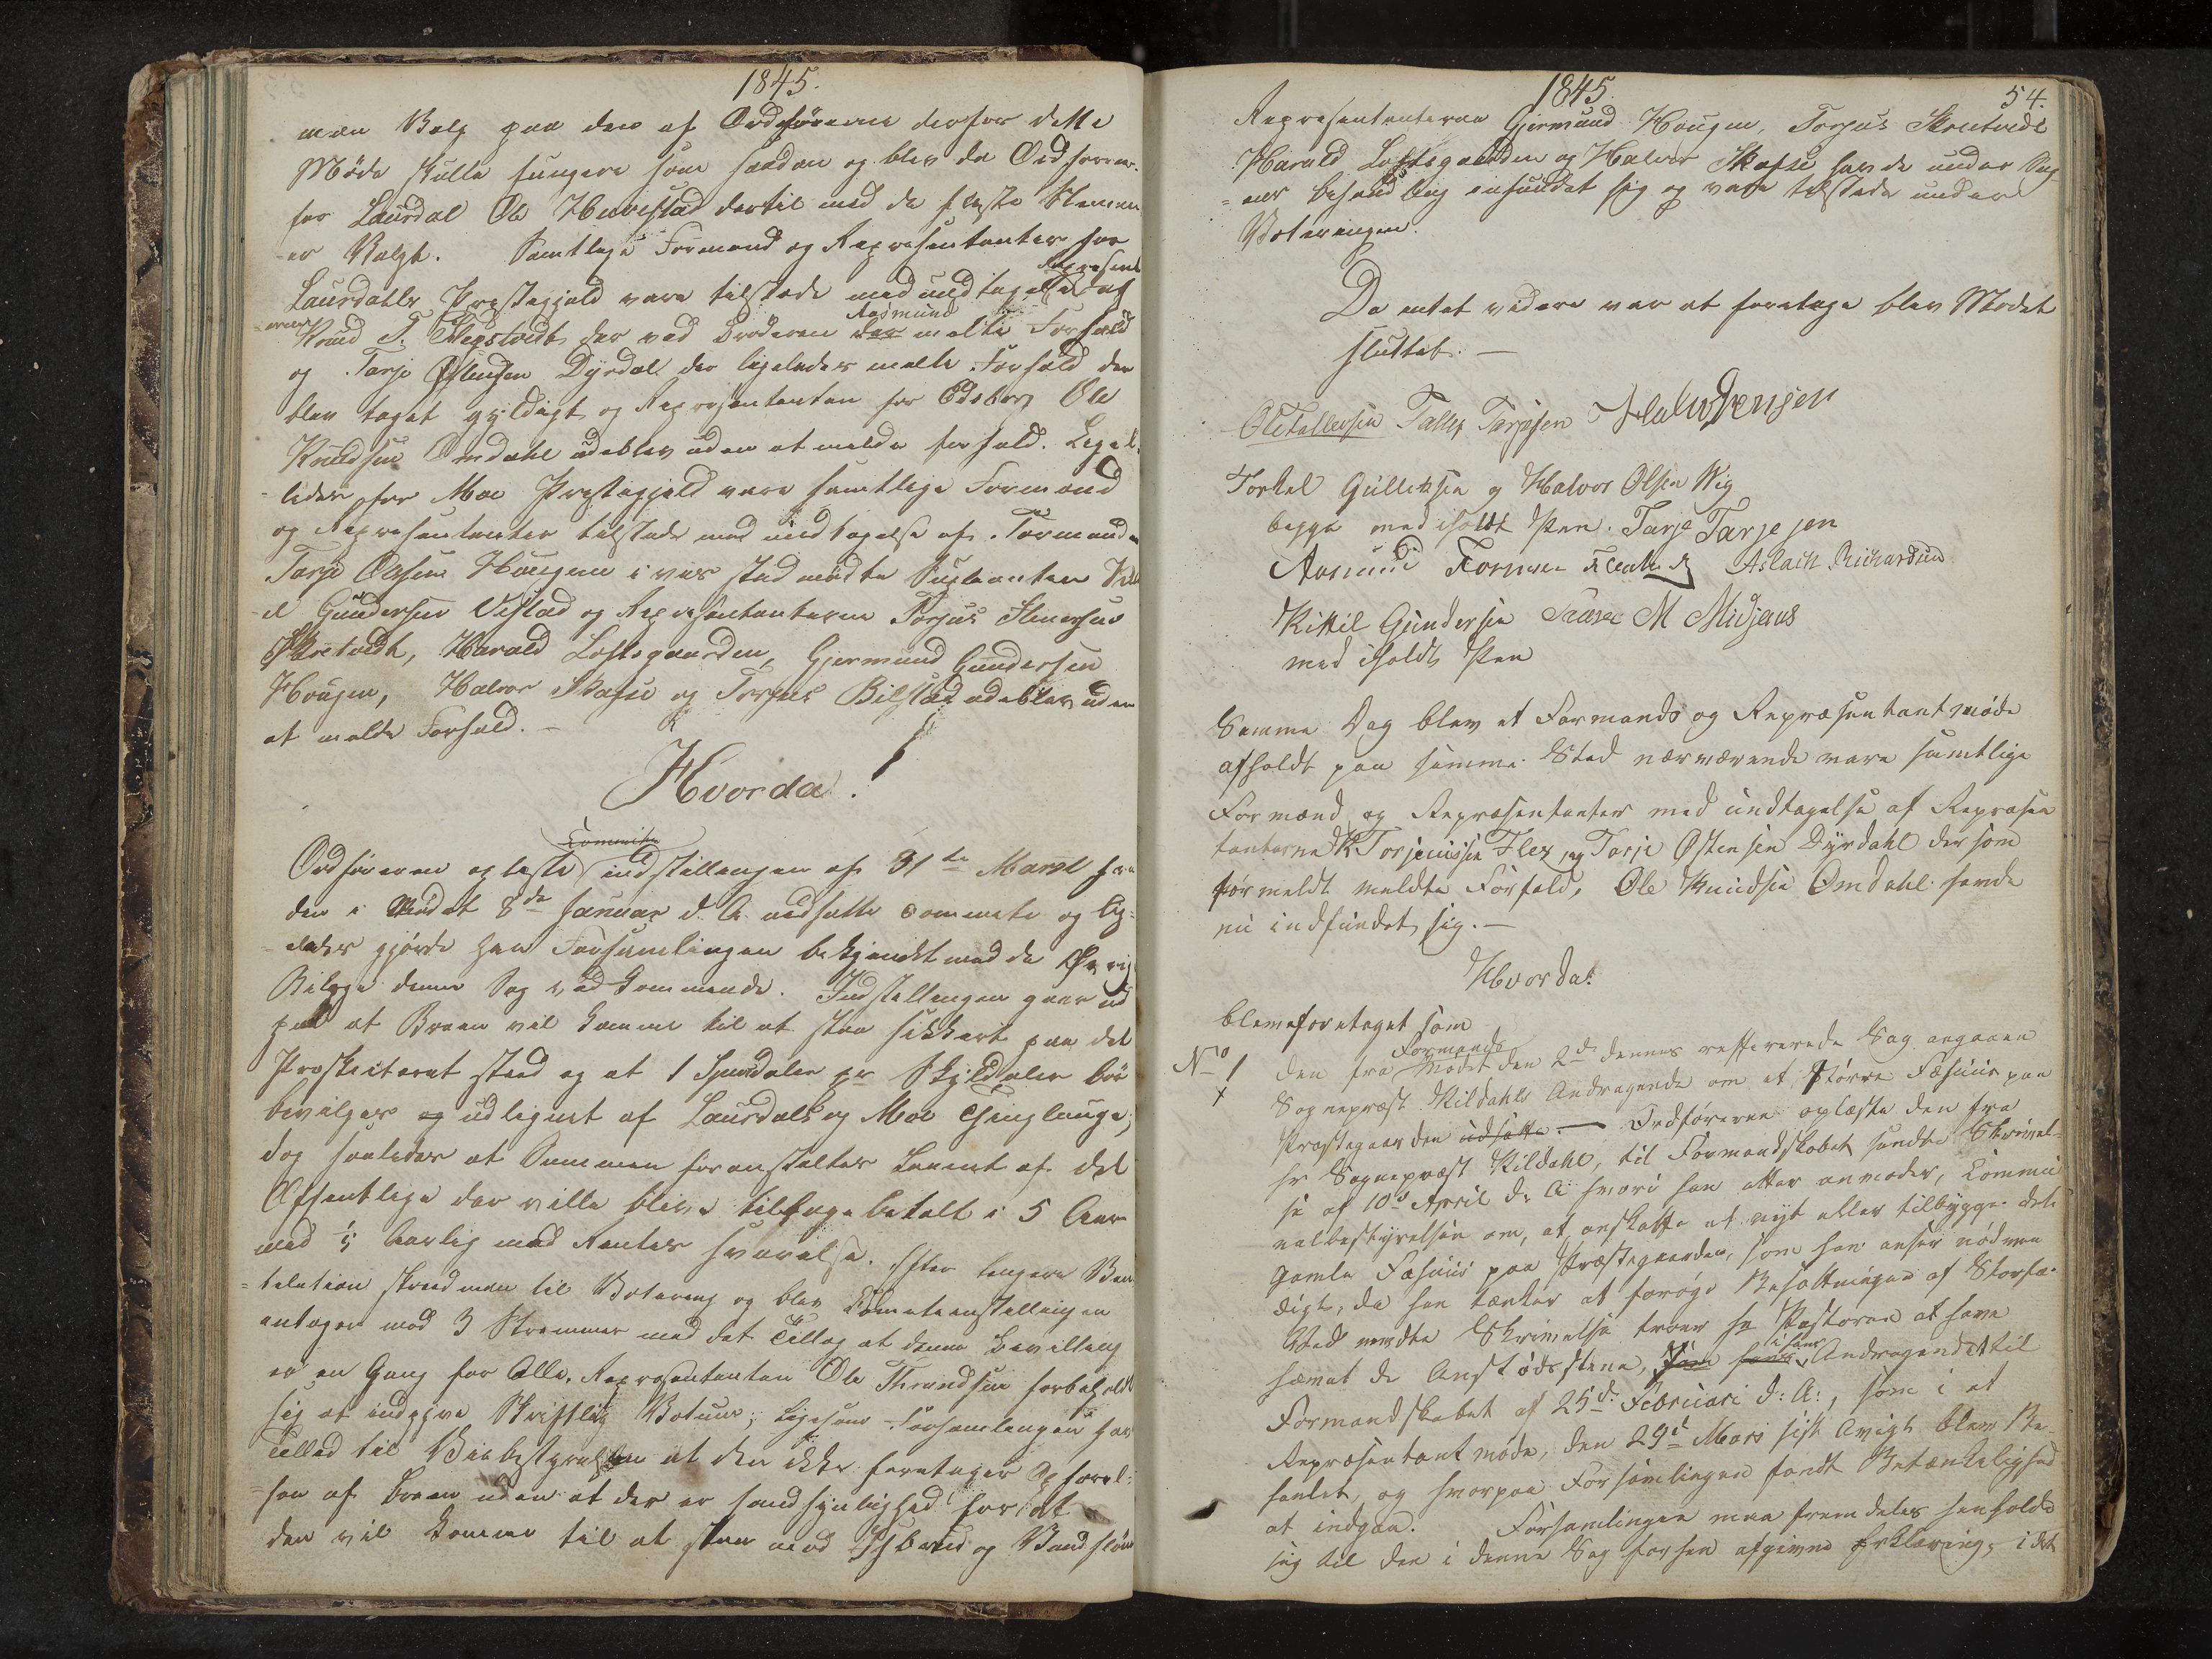 1845.
man Valg paa den af Ordførerne der for dette
Møde skulle fungere som saadan og blev da Ordføreren
for Laurdal Ole Hvrestad dertil med de fleste Stemm
-er Valgt. Samtlige Formænd og Repræsentanter for
Laurdahls Præstegjeld vare tilstæde med undtagelse af Repræsent
-anterne Knud T. der ved Broderen Aasmund meldte Forfald
og Tarje Østensen Dyrdal der ligeledes meldte Forfald der
blev taget gyldigt og Repræsentanten for Ole
Knudsen Omdahl udeblev uden at melde forfald. Lige-
ledes for Moe Præstegjeld vare samtlige Formænd
og Repræsentanter tilstede med undtagelse af Formanden
Tarje Olsen Hougen i vis sted mødte Suplianten Kitt
-il Gundersen Vistad og Repræsentanterne Torjus Stenersen
Skretvedt, Harald Loftsgaarden, Gjermund Gundersen
Hougen, Halvor Skafse og Torjus Bilstad udeblev uden
at melde Forfald. —
Hvorda!
Ordføreren oplæste Commite indstillingen af 31te Marst fra
den i Mødet 8de Januar d. A. nedsatte Commete og lig-
-eledes gjorde han Forsamlingen bekjendt med de Øvrige
Bilage denne Sag ved kommende. Indstillingen gaar ud
paa at Broen vil komme til at staa sikkert paa det
Prosketeret sted og at 1 Spesidaler pr Skylddaler bør
bevilges og udlignet af Laurdals og Moe Thinglauge,
dog saaledes at Summen foranstaltes Laant af det
Offentlige der ville blive tilbage betalt i 5 Aar
med 1/5 Aarlig med Renters svarelse. Efter længere Ven-
-telation skred man til Votering og blev Cometeenstillingen
antagen mod 3 Stemmer med det Tillæg at denne Bevilling
er en Gang for Alle. Repræsentanten Ole Throndsen forbeholdt
sig at indgive Skriftlig Votum; Ligesom Forsamlingen har
Tillid til Veibestyrelsen at den ikke foretager Opførel-
-sen af Broen uden at der er sandsynlighed for at
den vil komme til at staa mod Isbrud og Vandfløm
1845. 54.
Repræsentanterne Gjermund Hougen, Torjus Skretvedt
Harald Loftsgaarden og Halvor Skafse havde under Sag-
-ens behandling infundet sig og vare tilstede under
Voteringen.
Da intet videre var at foretage blev Mødet
sluttet. —
Ole Tallevsen Tallef Tarjesen Halvorsensen
Torkel Gullichsen og Halvor Olsen Vig
begge med iholdt Pen. Tarje Tarjesen
Aasmund Aslach Richardsen
Kittil Gundersen M Midjaas
med iholdt Pen
Samme Dag blev et Formands og Repræsentantmøde
afholdt paa samme Sted nærværende vare samtlige
Formænd og Repræsentanter med undtagelse af Repræsen
tanterne K Torjeussen Flex, og Tarje Østensen Dyrdahl der som
før meldt meldte Forfald, Ole Knudsen Omdahl havde
nu indfundet sig. —
Hvorda!
blev foretaget som
No 1 den fra Formands Mødet den 2d dennes refererede Sag angaaen
x Sognepræst Kildahls Andragende om et større Fæhuus paa
Præstegaarden udsatte. — Ordføreren oplæste den fra
Hr Sognepræst Kildahl, til Formandskabet sendte Skrivel-
se af 10d April d. A hvori han atter anmoder, Commu
nalbestyrelsen om, at anskaffe et nyt eller tilbygge det
gamle Fæhuus paa Præstegaarden, som han anser nødven
digt, da han tænker at forøge Besætningen af Storfæ.
Ved nevndte Skrivelse troer Hr Pastoren at have
hævet de Anstødsstene, som hans i hans Andragendet til
Formandskabet af 25d Februari d: A:, som i et
Repræsentantmøde, den 29d Mars sist Avigt blev Be-
handlet, og hvorpaa Forsamlingen fandt Betænkelighed
at indgaa. Forsamlingen maa fremdeles henholde
sig til den i denne Sag forhen afgivne Erklæring, idet